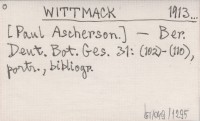 WITTMACK 1913...
[Paul Ascherson.] — Ber.
Deut. Bot. Ges. 31: (102)-(110),
portr., bibliogr.